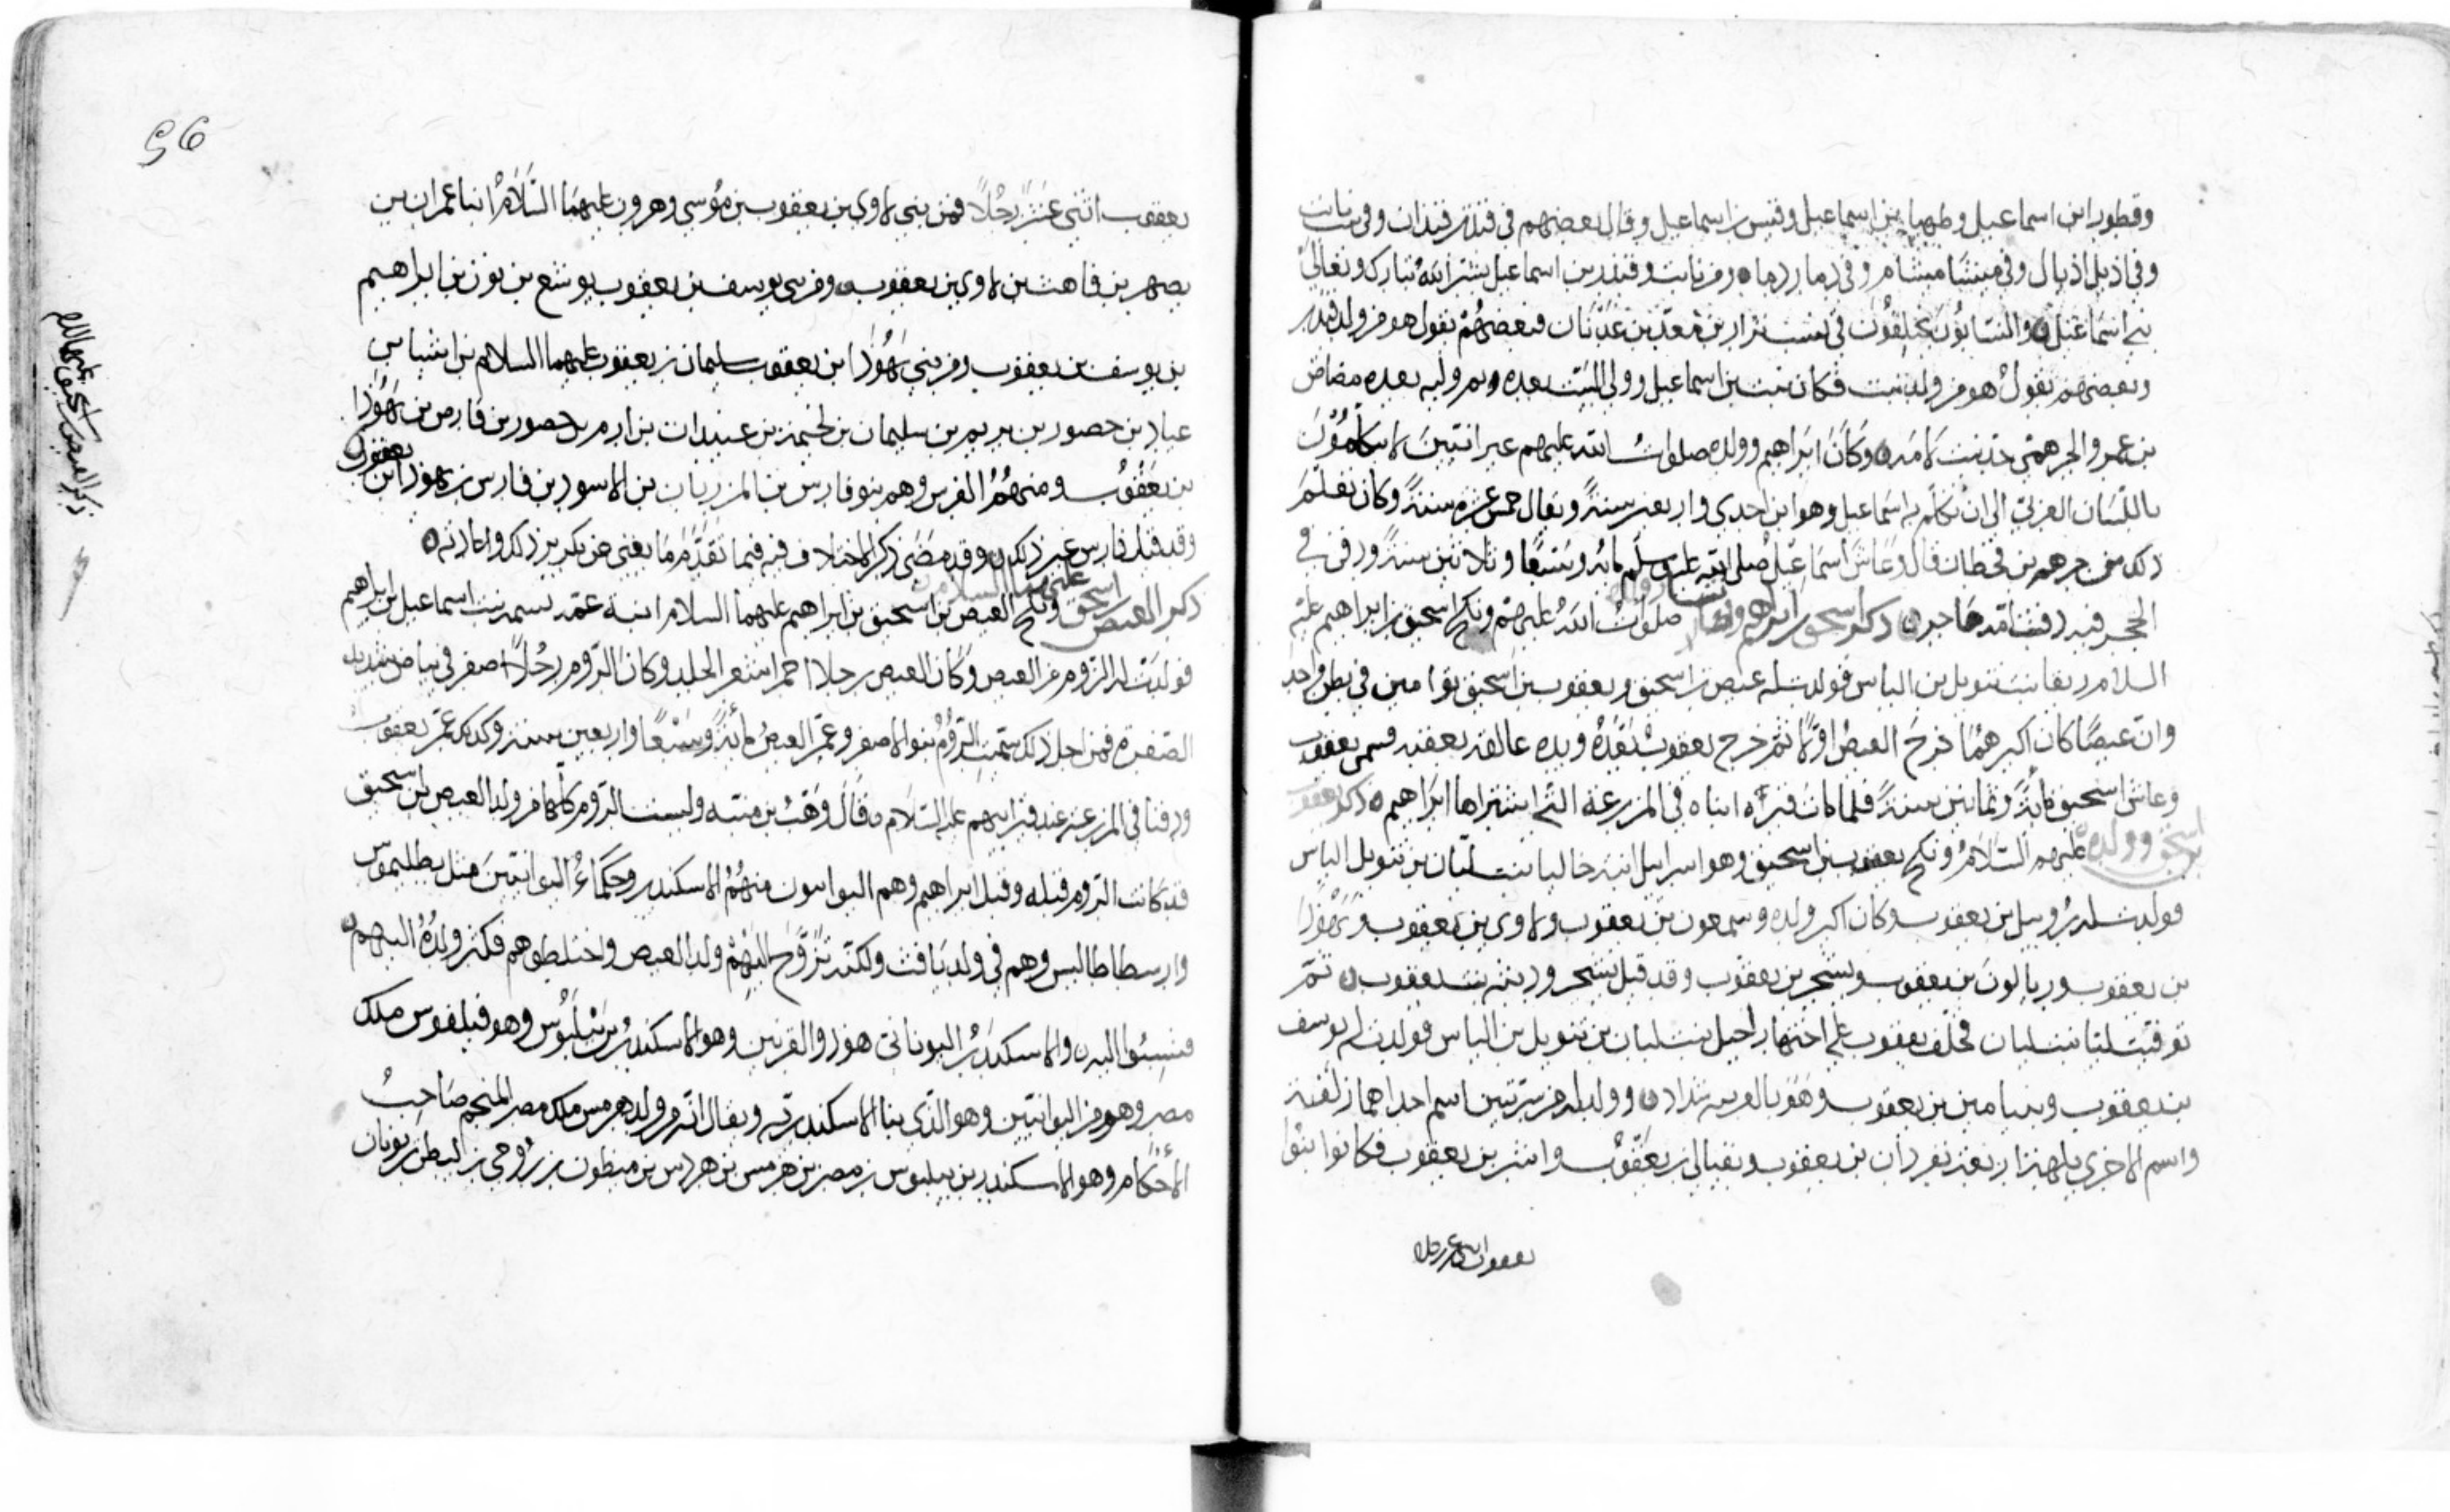 وقطورا بن اسماعيل وطهيا بن اسماعيل وقيس بن اسماعيل وقال بعضهم في قيذر قيذان وفي نابت
وفي اذبل اذبال وفي ميشا ميشام وفي دما ردما ومن نابت وقيذر بن اسماعيل نشر الله تبارك وتعالى
بني اسماعيل والنسابون يختلفون في نسب نزار بن معد بن عدنان فبعضهم يقول هو من ولد قيذر
وبعضهم يقول هو من ولد نبت فكان نبت بن اسماعيل وولي البيت بعده ثم وليه بعده مضاض
بن عمرو الجرهمي جد نبت لامه وكان ابراهيم وولده صلوات الله عليهم عبرانيين لا يتكلمون
باللسان العربي الى ان تكلم به اسماعيل وهو ابن احدى واربعين سنة ويقال خمس عشرة سنة وكان تعلم
ذلك من جرهم بن قحطان قال وعاش اسماعيل صلى الله عليه وسلم مائة وسبعا وثلاثين سنة ودفن في
الحجر فيه دفنت امه هاجر ذكر اسحق بن ابراهيم صلوات الله عليهم ونكح اسحق بن ابراهيم عليه
السلام ربقا بنت نتويل بن الياس فولدت له عيص بن اسحق ويعقوب بن اسحق توامين في بطن واحد
وان عيصا كان اكبرهما خرج العيص اولا ثم خرج يعقوب بعده ويده عالقة بعقبه فسمي يعقوب
وعاش اسحق مائة وثمانين سنة فلما مات قبره ابناه في المزرعة التي اشتراها ابراهيم ذكر يعقوب
بن اسحق وولده عليهم السلام ونكح يعقوب بن اسحق وهو اسرايل ابنة خاليا بنت لبان بن نتويل الياس
فولدت له روبيل بن يعقوب وكان اكبر ولده وسمعون بن يعقوب ولاوي بن يعقوب ويهوذا
بن يعقوب وربالون بن يعقوب ويشجر بن يعقوب وقد قيل يشحر ودينه بنت يعقوب ثم
توفيت ليا بنت لبان فخلف يعقوب على اختها راحيل بنت لبان بن نتويل بن الياس فولدت له يوسف
بن يعقوب وبنيامين بن يعقوب وهو بالعربية شداد وولد له من سريتين اسم احداهما زلفة
واسم الاخرى بلهة اربعة نفر دان بن يعقوب ونفتالي بن يعقوب واشر بن يعقوب فكانوا بنوا
يعقوب اثني عشر رجلا
96
يعقوب اثني عشر رجلا فمن بني لاوي بن يعقوب بن موسى وهرون عليهما السلام ابنا عمران بن
يصهر بن قاهث بن لاوي بن يعقوب ومن بني يوسف بن يعقوب يوشع بن نون بن ابراهيم
بن يوسف بن يعقوب ومن بني يهوذا ابن يعقوب سليمان بن يعقوب عليهما السلام بن ايشا بن
عياد بن حصور بن بريم بن سليمان بن لخيمة بن عبيدات بن ارم بن حصور بن فارص بن يهوذا
بن يعقوب ومنهم الفرس وهم بنو فارس بن المرزبان بن الاسود بن فارس بن يهوذا ابن يعقوب
وقد قيل فارس غير ذلك وقد مضى ذكر الاختلاف فيه فيما تقدم ما يغني عن تكرير ذلك واعادته
ذكر العيص بن اسحق عليهما السلام ونكح العيص بن اسحق بن ابراهيم عليهما السلام ابنة عمه بسمة بنت اسماعيل بن ابراهيم
فولدت له الروم من العيص وكان العيص رجلا احمر اشعر الجلد وكان الروم رجلا اصفر في بياض شديد
الصفرة فمن اجل ذلك سميت الروم بنو الاصفر وعمر العيص مائة وسبعا واربعين سنة وكذلك عمر يعقوب
ودفنا في المزرعة عند قبر ابيهم عليه السلام قال وهب بن منبه وليست الروم كلها من ولد العيص بن اسحق
قد كانت الروم قبله وقبل ابراهيم وهم اليوانيون منهم الاسكندر وحكماء اليوانيين مثل بطليموس
وارسطاطاليس وهم في ولد يافث ولكنه تزوج اليهم ولد العيص واختلطوهم فكثر ولده اليهم
فنسبوا اليه والاسكندر اليوناني هو ذو القرنين وهو الاسكندر بن بيلبوس وهو فيلفوس ملك
مصر وهو من اليوانيين وهو الذي بنا الاسكندرية ويقال انه من ولد هرمس ملك مصر المنجم صاحب
الاحكام وهو الاسكندر بن بيلبوس بن مصر بن هرمس بن هردس بن ميطون بن رومي بن ليطي بن يونان
ذكر العيص بن اسحق عليهما السلم